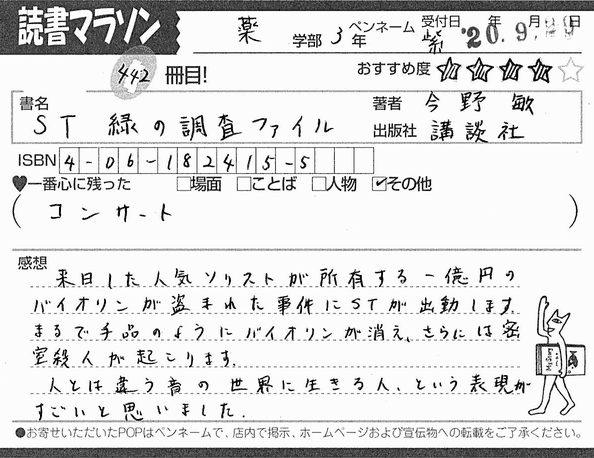 読書マラソン
薬 学部 3 年 ペンネーム 紫 受付日 '20. 9. 年 月 日
442 冊目!
おすすめ度
書名 ST 緑の調査ファイル
著者 今野 敏
出版社 講談社
ISBN 4-06-182415-5
♥一番心に残った □場面 □ことば □人物 ☑その他
( コンサート )
感想
来日した人気ソリストが所有する一億円の
バイオリンが盗まれた事件にSTが出動します。
まるで手品のようにバイオリンが消え、さらには密
室殺人が起こります。
人とは違う音の世界に生きる人、という表現が
すごいと思いました。
●お寄せいただいたPOPはペンネームで、店内で掲示、ホームページおよび宣伝物への転載をご了承ください。